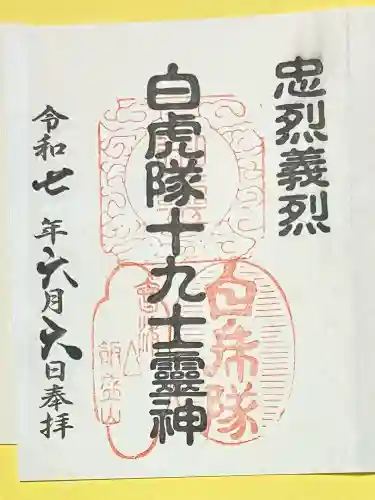 忠烈義烈
白虎隊十九士靈神
令和七年六月六日奉拝
白帋隊
飯盛山